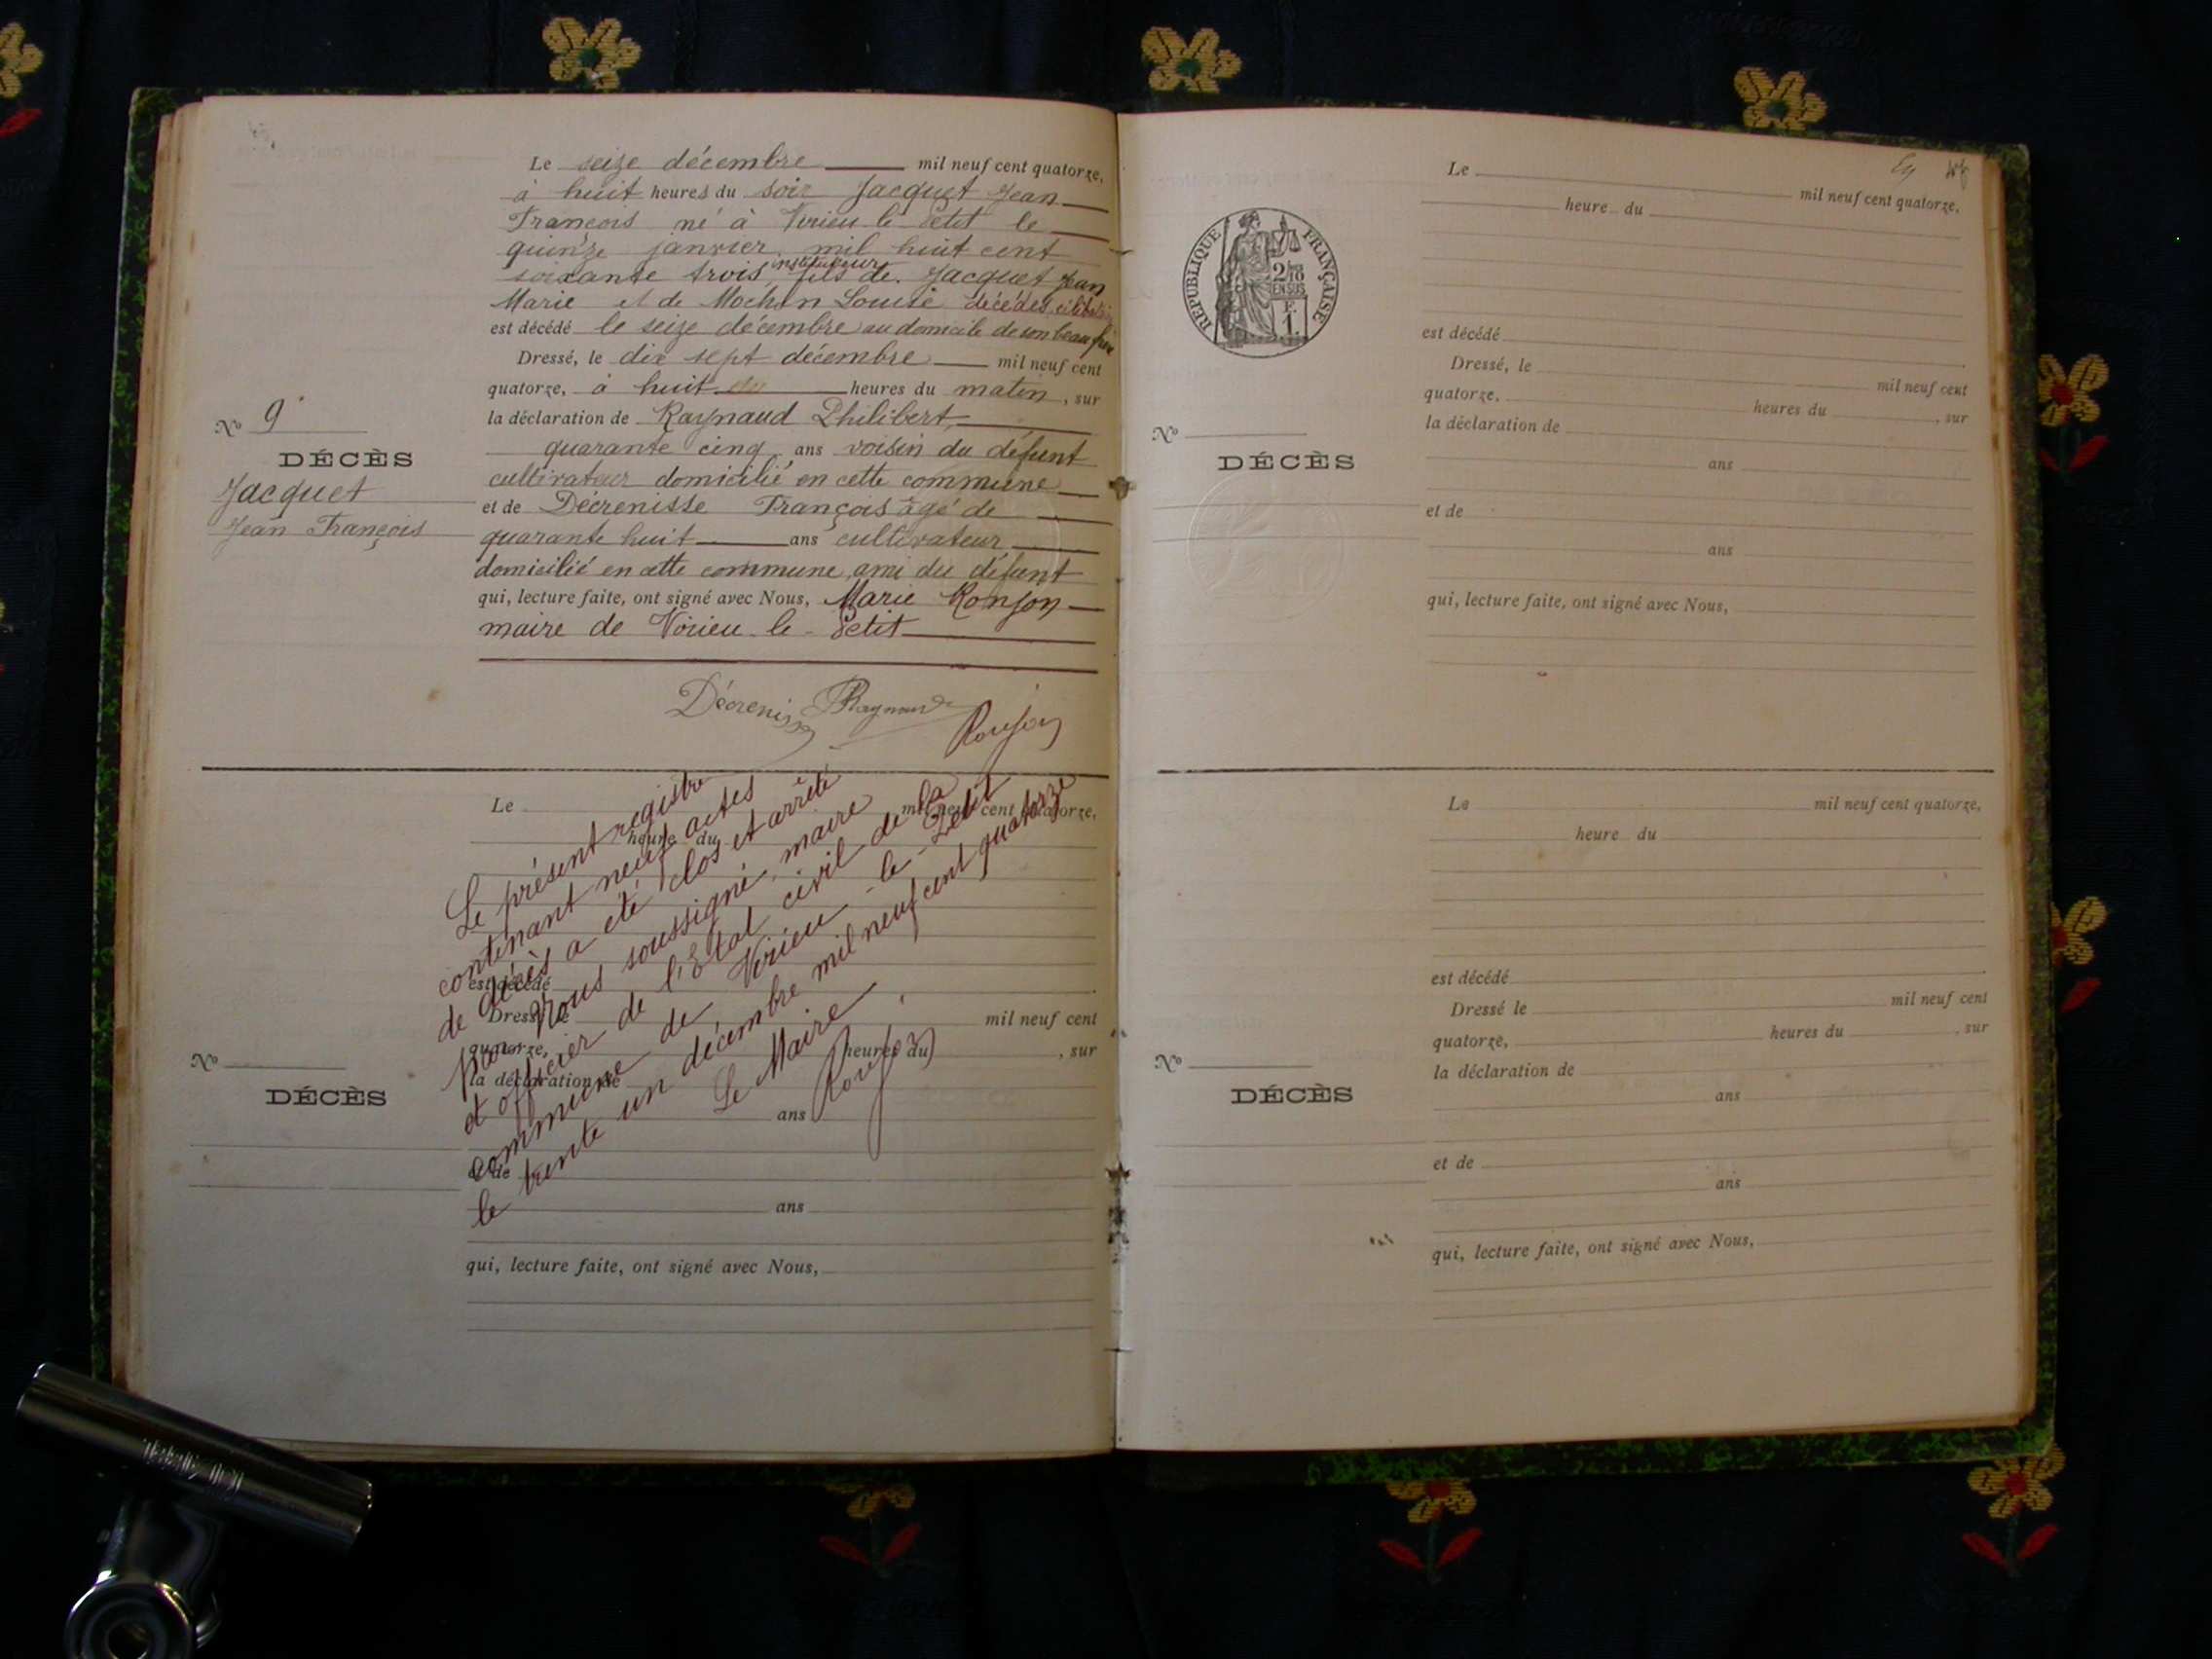 Le seize décembre mil neuf cent quatorze,
à huit heures du soir Jacquet Jean
François né à Virieu-le-Petit le
quinze janvier mil huit cent
soixante trois, instituteur, fils de Jacquet Jean
Marie et de Mochon Louise décédés, célibataire
est décédé le seize décembre au domicile de son beau frère
Dressé, le dix sept décembre mil neuf cent
quatorze, à huit heures du matin, sur
la déclaration de Raynaud Philibert,
quarante cinq ans voisin du défunt
cultivateur domicilié en cette commune
et de Décrenisse François âgé de
quarante huit ans cultivateur
domicilié en cette commune, ami du défunt
qui, lecture faite, ont signé avec Nous, Marie Ronjon
maire de Virieu-le-Petit
No 9
DÉCÈS
Jacquet
Jean François
Décrenisse PRaynaud
Ronjon
Le mil neuf cent quatorze,
heure du
est décédé
Dressé, le mil neuf cent
quatorze, heures du , sur
la déclaration de
ans
et de
ans
qui, lecture faite, ont signé avec Nous,
No
DÉCÈS
Le présent registre
contenant neuf actes
de décès a été clos et arrêté
par Nous soussigné, maire
et officier de l'Etat civil de la
commune de Virieu-le-Petit
le trente un décembre mil neuf cent quatorze
Le Maire
Ronjon
RÉPUBLIQUE FRANÇAISE
F.
1.
Le mil neuf cent quatorze,
heure du
est décédé
Dressé, le mil neuf cent
quatorze, heures du , sur
la déclaration de
ans
et de
ans
qui, lecture faite, ont signé avec Nous,
No
DÉCÈS
Le mil neuf cent quatorze,
heure du
est décédé
Dressé le mil neuf cent
quatorze, heures du , sur
la déclaration de
ans
et de
ans
qui, lecture faite, ont signé avec Nous,
No
DÉCÈS